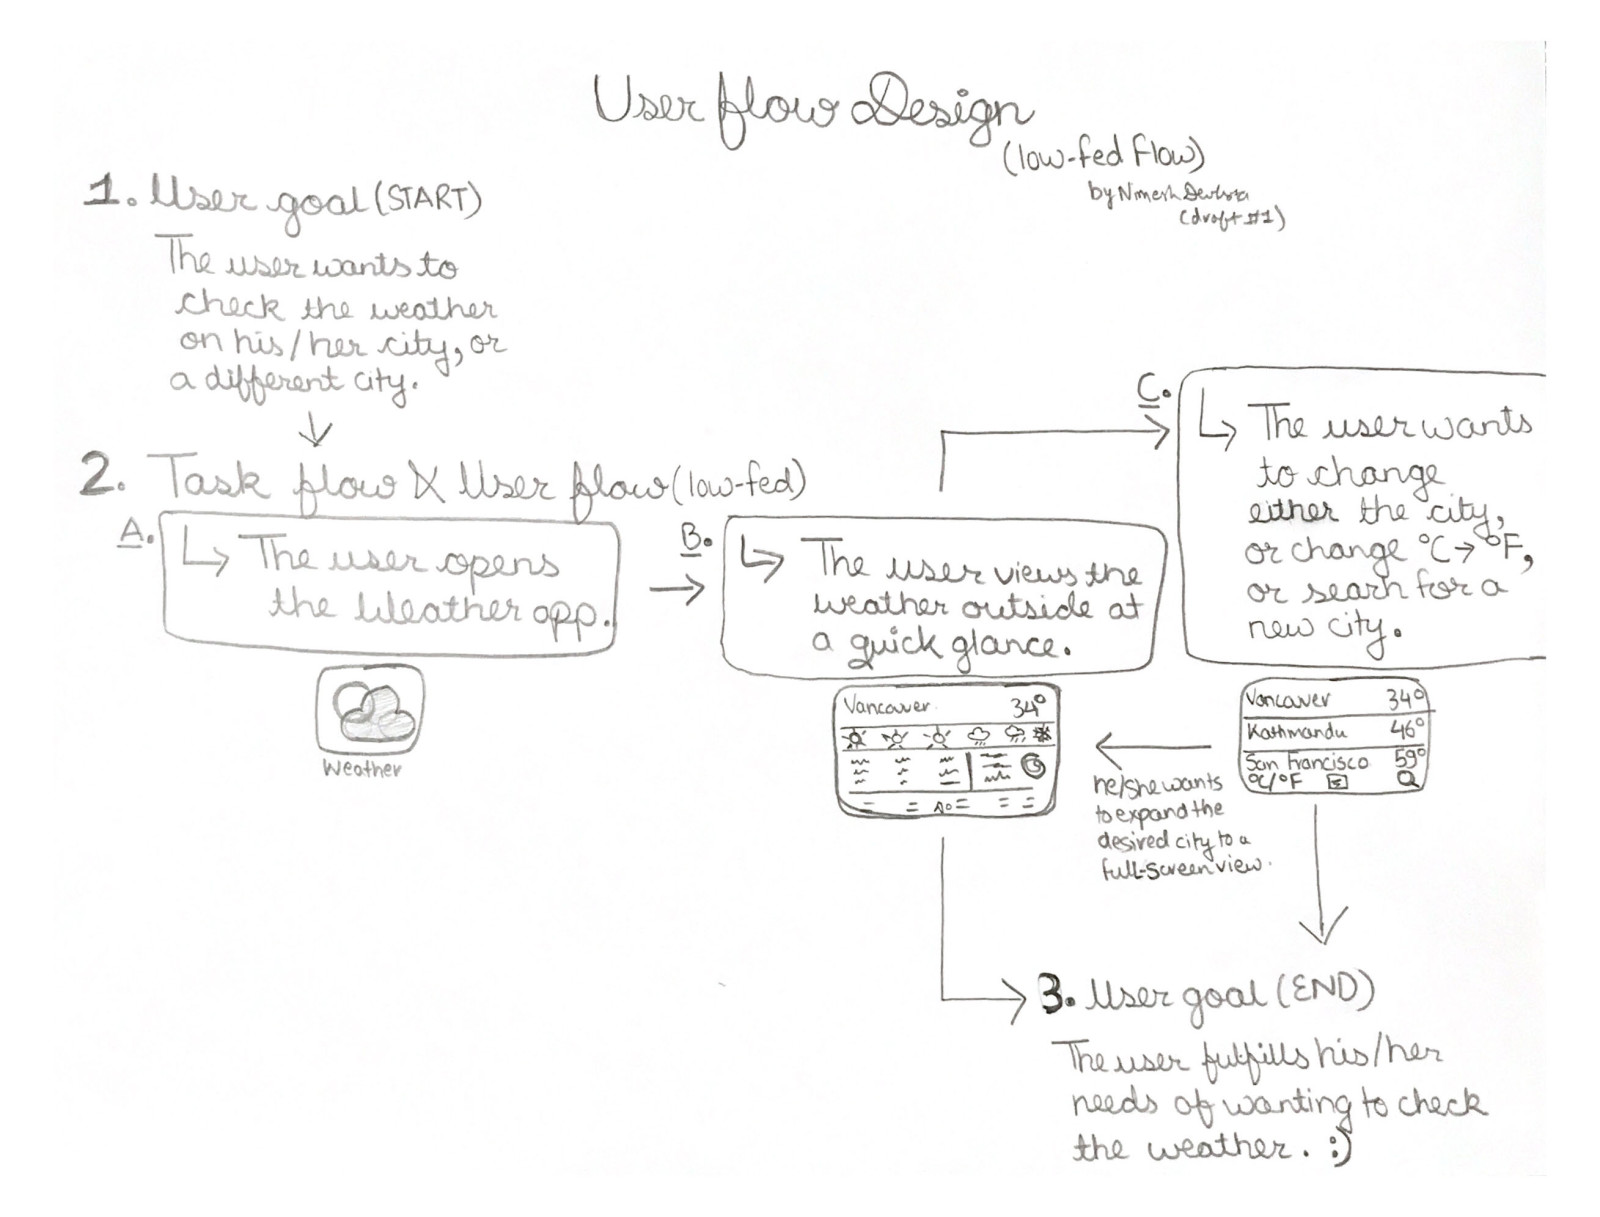 User flow Design
(low-fed flow)
by Nimesh
(draft #1)
1. User goal (START)
The user wants to
check the weather
on his/her city, or
a different city.
2. Task flow X User flow (low-fed)
A.
The user opens
the Weather app.
Weather
B.
The user views the
weather outside at
a quick glance.
Vancouver 34°
C.
The user wants
to change
either the city,
or change °C → °F,
or search for a
new city.
Vancouver 34°
Kathmandu 46°
San Francisco 59°
°C/°F
he/she wants
to expand the
desired city to a
full-screen view.
3. User goal (END)
The user fulfills his/her
needs of wanting to check
the weather. :)